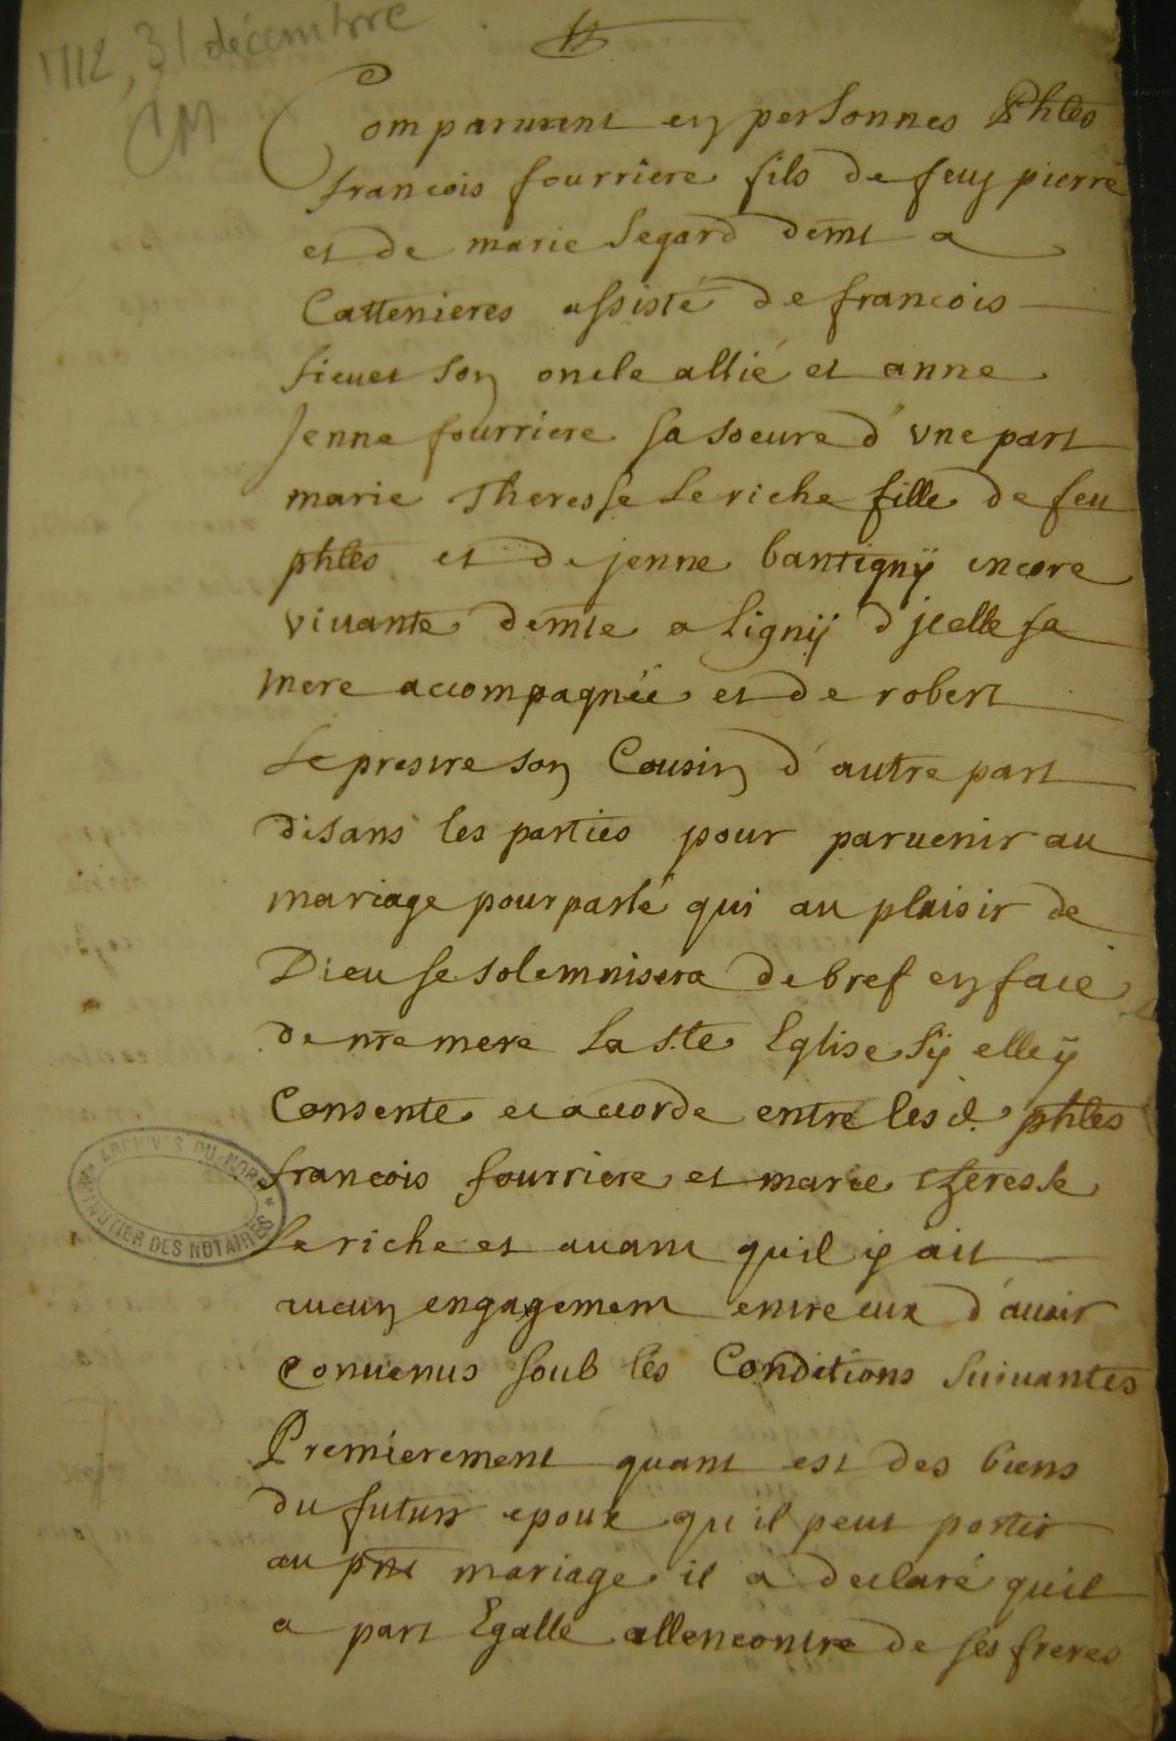 1712, 31 décembre
CM
Comparurent en personnes Phles
francois fourriere fils de feu pierre
et de marie Segard demt a
Cattenieres assisté de francois
sieuet son oncle allié et anne
Jenne fourriere sa soeure d'vne part
marie Theresse Leriche fille de feu
phles et de jenne bantignÿ encore
viuante demte a LignÿÏ d'jcelle sa
mere accompagnée et de robert
Leprestre son Cousin d'autre part
disans les parties pour paruenir au
mariage pourparlé qui au plaisir de
Dieu se solemnisera de bref en face
de nre mere La s.te Eglise sÿ elle ÿ
Consente et accorde entre lesd. phles
francois fourriere et marie theresse
Leriche et auant quil ÿ ait
aucun engagement entre eux d'auoir
conuenus soub les Conditions suiuantes
Premierement quant est des biens
du futur epoux qu'il peut porter
au pnt mariage il a declaré quil
a part Egalle allencontre de ses freres
ARCHIVES DU NORD
MINUTIER DES NOTAIRES